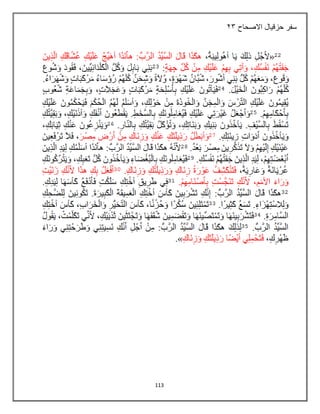 سفر حزقيال الاصحاح ٢٣
22«لأَجْلِ ذلِكَ يَا أُهُولِيبَةُ، هكَذَا قَالَ السَّيِّدُ الرَّبُّ: هأَنَذَا أُهَيِّجُ عَلَيْكِ عُشَّاقَكِ الَّذِينَ
جَفَتْهُمْ نَفْسُكِ، وَآتِي بِهِمْ عَلَيْكِ مِنْ كُلِّ جِهَةٍ: 23بَنِي بَابِلَ وَكُلَّ الْكَلْدَانِيِّينَ، فَقُودَ وَشُوعَ
وَقُوعَ، وَمَعَهُمْ كُلُّ بَنِي أَشُّورَ، شُبَّانُ شَهْوَةٍ، وُلاَةٌ وَشِحَنٌ كُلُّهُمْ رُؤَسَاءُ مَرْكَبَاتٍ وَشُهَرَاءُ.
كُلُّهُمْ رَاكِبُونَ الْخَيْلَ. 24فَيَأْتُونَ عَلَيْكِ بِأَسْلِحَةٍ مَرْكَبَاتٍ وَعَجَلاَتٍ، وَبِجَمَاعَةِ شُعُوبٍ
يُقِيمُونَ عَلَيْكِ التُّرْسَ وَالْمِجَنَّ وَالْخُوذَةَ مِنْ حَوْلِكِ، وَأُسَلِّمُ لَهُمُ الْحُكْمَ فَيَحْكُمُونَ عَلَيْكِ
بِأَحْكَامِهِمْ. 25وَأَجْعَلُ غَيْرَتِي عَلَيْكِ فَيُعَامِلُونَكِ بِالسَّخَطِ. يَقْطَعُونَ أَنْفَكِ وَأُذُنَيْكِ، وَبَقِيَّتُكِ
تَسْقُطُ بِالسَّيْفِ. يَأْخُذُونَ بَنِيكِ وَبَنَاتِكِ، وَتُؤْكَلُ بَقِيَّتُكِ بِالنَّارِ. 26وَيَنْزِعُونَ عَنْكِ ثِيَابَكِ،
وَيَأْخُذُونَ أَدَوَاتِ زِينَتِكِ. 27وَأُبَطِّلُ رَذِيلَتَكِ عَنْكِ وَزِنَاكِ مِنْ أَرْضِ مِصْرَ، فَلاَ تَرْفَعِينَ
عَيْنَيْكِ إِلَيْهِمْ وَلاَ تَذْكُرِينَ مِصْرَ بَعْدُ. 28لأَنَّهُ هكَذَا قَالَ السَّيِّدُ الرَّبُّ: هأَنَذَا أُسَلِّمُكِ لِيَدِ الَّذِينَ
أَبْغَضْتِهِمْ، لِيَدِ الَّذِينَ جَفَتْهُمْ نَفْسُكِ. 29فَيُعَامِلُونَكِ بِالْبَغْضَاءِ وَيَأْخُذُونَ كُلَّ تَعَبِكِ، وَيَتْرُكُونَكِ
عُرْيَانَةً وَعَارِيَةً، فَتَنْكَشِفُ عَوْرَةُ زِنَاكِ وَرَذِيلَتُكِ وَزِنَاكِ. 30أَفْعَلُ بِكِ هذَا لأَنَّكِ زَنَيْتِ
وَرَاءَ الأُمَمِ، لأَنَّكِ تَنَجَّسْتِ بِأَصْنَامِهِمْ. 31فِي طَرِيقِ أُخْتِكِ سَلَكْتِ فَأَدْفَعُ كَأْسَهَا لِيَدِكِ.
32هكَذَا قَالَ السَّيِّدُ الرَّبُّ: إِنَّكِ تَشْرَبِينَ كَأْسَ أُخْتِكِ الْعَمِيقَةَ الْكَبِيرَةَ. تَكُونِينَ لِلضَّحِكِ
وَلِلاسْتِهْزَاءِ. تَسَعُ كَثِيرًا. 33تَمْتَلِئِينَ سُكْرًا وَحُزْنًا، كَأْسَ التَّحَيُّرِ وَالْخَرَابِ، كَأْسَ أُخْتِكِ
السَّامِرَةِ. 34فَتَشْرَبِينَهَا وَتَمْتَصِّينَهَا وَتَقْضَمِينَ شُقَفَهَا وَتَجْتَثِّينَ ثَدْيَيْكِ، لأَنِّي تَكَلَّمْتُ، يَقُولُ
السَّيِّدُ الرَّبُّ. 35لِذلِكَ هكَذَا قَالَ السَّيِّدُ الرَّبُّ: مِنْ أَجْلِ أَنَّكِ نَسِيتِنِي وَطَرَحْتِنِي وَرَاءَ
ظَهْرِكِ، فَتَحْمِلِي أَيْضًا رَذِيلَتَكِ وَزِنَاكِ».
113